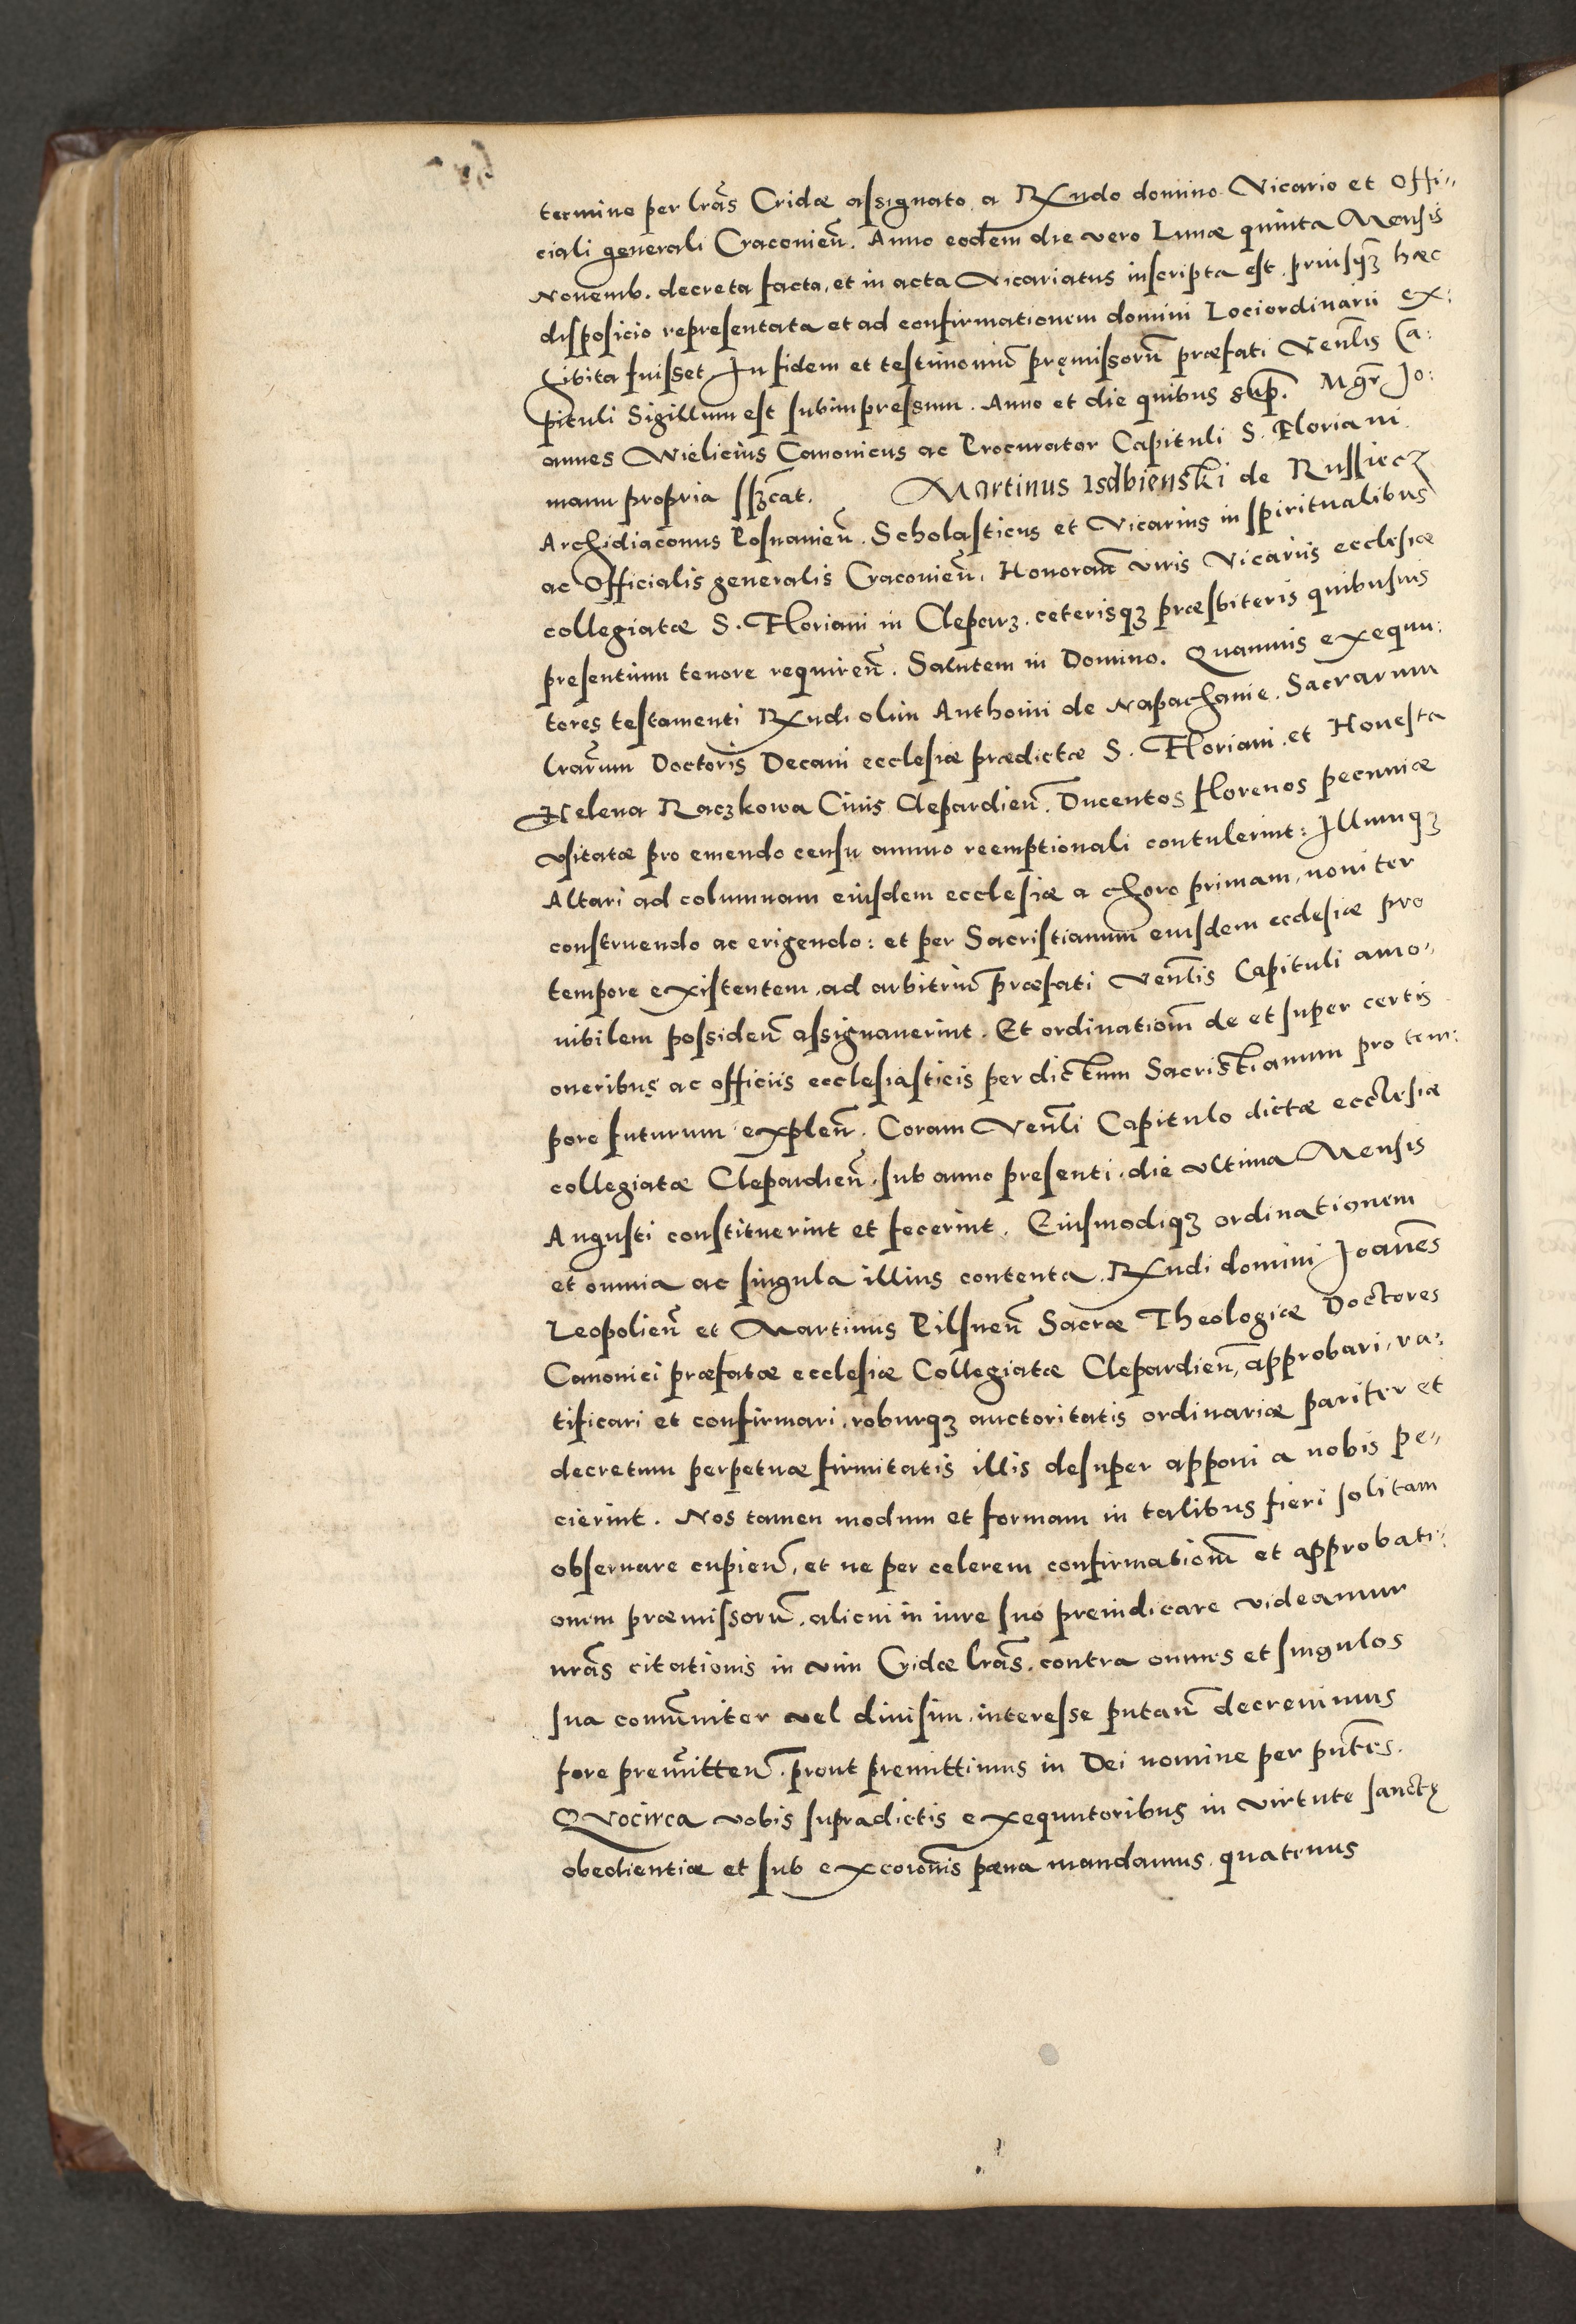 termino per lrãs Cridæ assignato. a Rxndo domino Vicario et Offi„
ciali generali Craconieñ. Anno eodem die vero Lunæ quinta Mensis
Nouemb. decreta facta, et in acta Vicariatus inscripta est. priusqꝫ hæc
disposicio representata et ad confirmationem domini Lociordinarii ex:
hibita fuisset. In fidem et testimoniũ pręmissorũ præfati Venlis Ca:
pituli Sigillum est subimpressum. Anno et die quibus sup. Mgr̃ Jo:
annes Wielicius Canonicus ac Procurator Capituli S. Floriani.
manu propria ssꝫcat. Martinus Isdbienski de Russiecz
Archidiaconus Posnanieñ. Scholasticus et Vicarius in spiritualibus
ac Officialis generalis Craconieñ. Honorañ viris Vicariis ecclesiæ
collegiatæ S. Floriani in Clepars. ceterisqꝫ præsbiteris quibusuis
presentium tenore requireñ. Salutem in Domino. Quamuis exequu:
tores testamenti Rxndi olim Anthonii de Napachanie. Sacrarum
lrãrum Doctoris Decani ecclesiæ prædictæ S. Floriani. et Honesta
Helena Raczkowa Ciuis Clepardieñ. Ducentos florenos pecuniæ
vsitatæ pro emendo censu annuo reemptionali contulerint: Illumqꝫ
Altari ad columnam eiusdem ecclesiæ a choro primam, nouiter
construendo ac erigendo: et per Sacristianum eiusdem ecclesiæ pro
tempore existentem. ad arbitriũ præfati Venlis Capituli amo„
uibilem possideñ assignauerint. Et ordinationẽ de et super certis
oneribus ac officiis ecclesiasticis per dictum Sacristianum pro tem:
pore futurum expleñ. Coram Venli Capitulo dictæ ecclesiæ
collegiatæ Clepardieñ. sub anno presenti. die vltima Mensis
Augusti constituerint et fecerint. Eiusmodiqꝫ ordinationem
et omnia ac singula illius contenta. Rxndi domini Joañes
Leopolieñ et Martinus Pilsneñ Sacræ Theologiæ Doctores
Canonici præfatæ ecclesiæ Collegiatæ Clepardieñ, approbari, ra:
tificari et confirmari, roburqꝫ auctoritatis ordinariæ pariter et
decretum perpetuæ firmitatis illis desuper apponi a nobis pe„
cierint. Nos tamen modum et formam in talibus fieri solitam
obseruare cupieñ, et ne per celerem confirmationẽ et approbati„
onem præmissorũ. alicui in iure suo preiudicare videamur
nrãs citationis in vim Cridæ lrãs. contra omnes et singulos
sua comũniter vel diuisim. interesse putañ decreuimus
fore premitteñ. prout premittimus in Dei nomine per pñtes.
Quocirca vobis supradictis exequutoribus in virtute sanctę
obedientiæ et sub excoiõnis pæna mandamus. quatenus